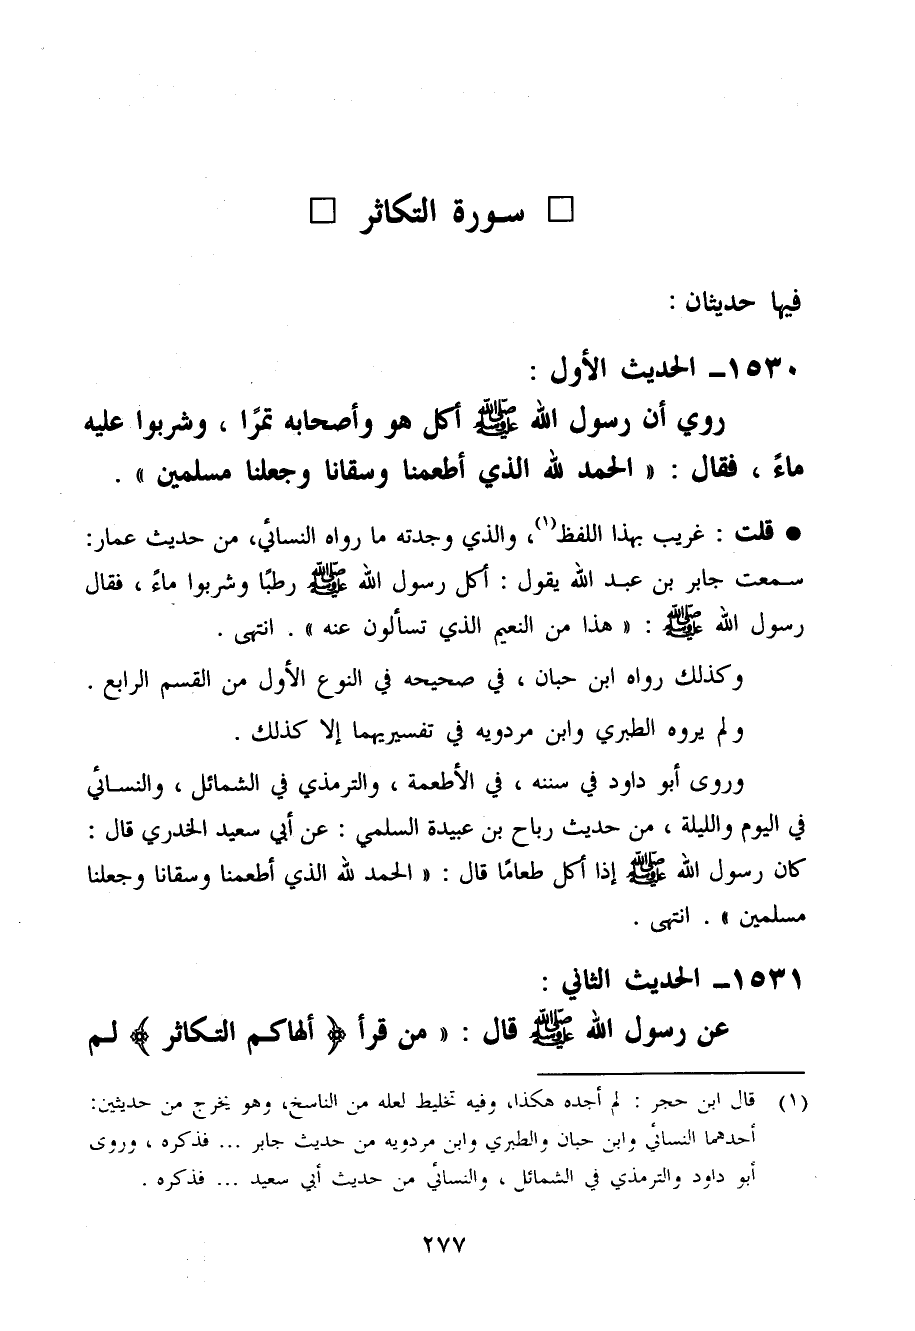 □ سورة التكاثر □
فيها حديثان :
١٥٣٠ـ الحديث الأول :
روي أن رسول الله ﷺ أكل هو وأصحابه تمرًا ، وشربوا عليه
ماءً ، فقال : « الحمد لله الذي أطعمنا وسقانا وجعلنا مسلمين » .
● قلت : غريب بهذا اللفظ(١)، والذي وجدته ما رواه النسائي، من حديث عمار:
سمعت جابر بن عبد الله يقول : أكل رسول الله ﷺ رطبًا وشربوا ماءً ، فقال
رسول الله ﷺ : « هذا من النعيم الذي تسألون عنه » . انتهى .
وكذلك رواه ابن حبان ، في صحيحه في النوع الأول من القسم الرابع .
ولم يروه الطبري وابن مردويه في تفسيريهما إلا كذلك .
وروى أبو داود في سننه ، في الأطعمة ، والترمذي في الشمائل ، والنسائي
في اليوم والليلة ، من حديث رباح بن عبيدة السلمي : عن أبي سعيد الخدري قال :
كان رسول الله ﷺ إذا أكل طعامًا قال : « الحمد لله الذي أطعمنا وسقانا وجعلنا
مسلمين » . انتهى .
١٥٣١ـ الحديث الثاني :
عن رسول الله ﷺ قال : « من قرأ ﴿ ألهاكم التكاثر ﴾ لم
(١) قال ابن حجر : لم أجده هكذا، وفيه تخليط لعله من الناسخ، وهو يخرج من حديثين:
أحدهما النسائي وابن حبان والطبري وابن مردويه من حديث جابر ... فذكره ، وروى
أبو داود والترمذي في الشمائل ، والنسائي من حديث أبي سعيد ... فذكره .
٢٧٧